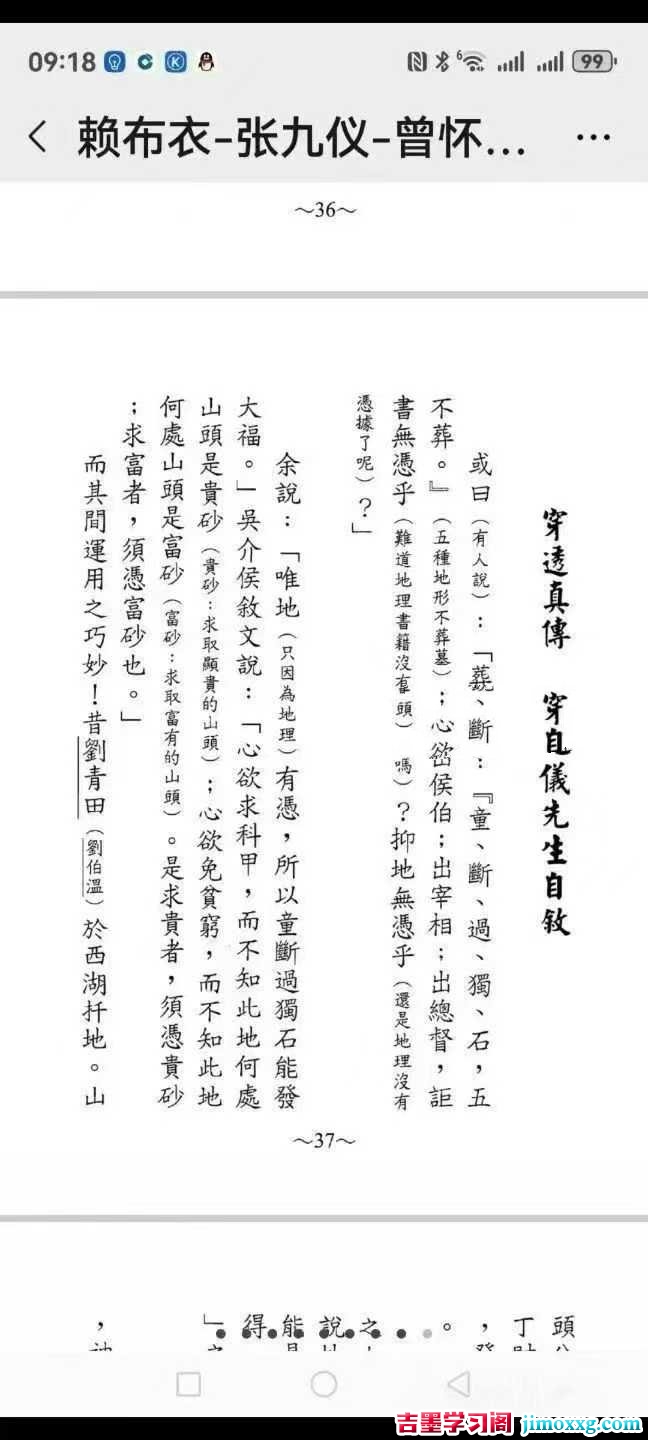 09:18
6
99
赖布衣-张九仪-曾怀...
~36~
穿透真傳 穿自儀先生自敘
或曰(有人說):「葬、斷:『童、斷、過、獨、石,五
不葬。』(五種地形不葬墓);心嵆侯伯;出宰相;出總督,詎
書無憑乎(難道地理書籍沒有頭) 嗎)?抑地無憑乎(還是地理沒有
憑據了呢)?」
余說:「唯地(只因為地理)有憑,所以童斷過獨石能發
大福。」吳介侯敘文說:「心欲求科甲,而不知此地何處
山頭是貴砂(貴砂:求取顯貴的山頭);心欲免貧窮,而不知此地
何處山頭是富砂(富砂:求取富有的山頭)。是求貴者,須憑貴砂
;求富者,須憑富砂也。」
而其間運用之巧妙!昔劉青田(劉伯溫)於西湖扦地。山
~37~
頭
丁
,
。
之
說
能
得
」
,
吉墨学习阁 jimoxxg.com